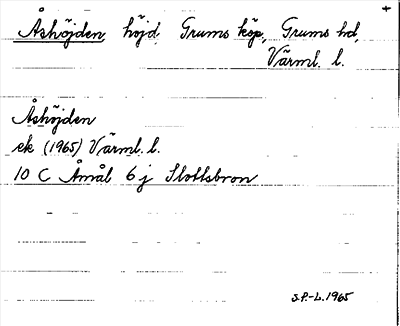 Åshöjden höjd Grums köp, Grums hd,
Värml. l.
Åshöjden
ek (1965) Värml. l.
10 C Åmål 6 j Slottsbron
S.P.-L. 1965